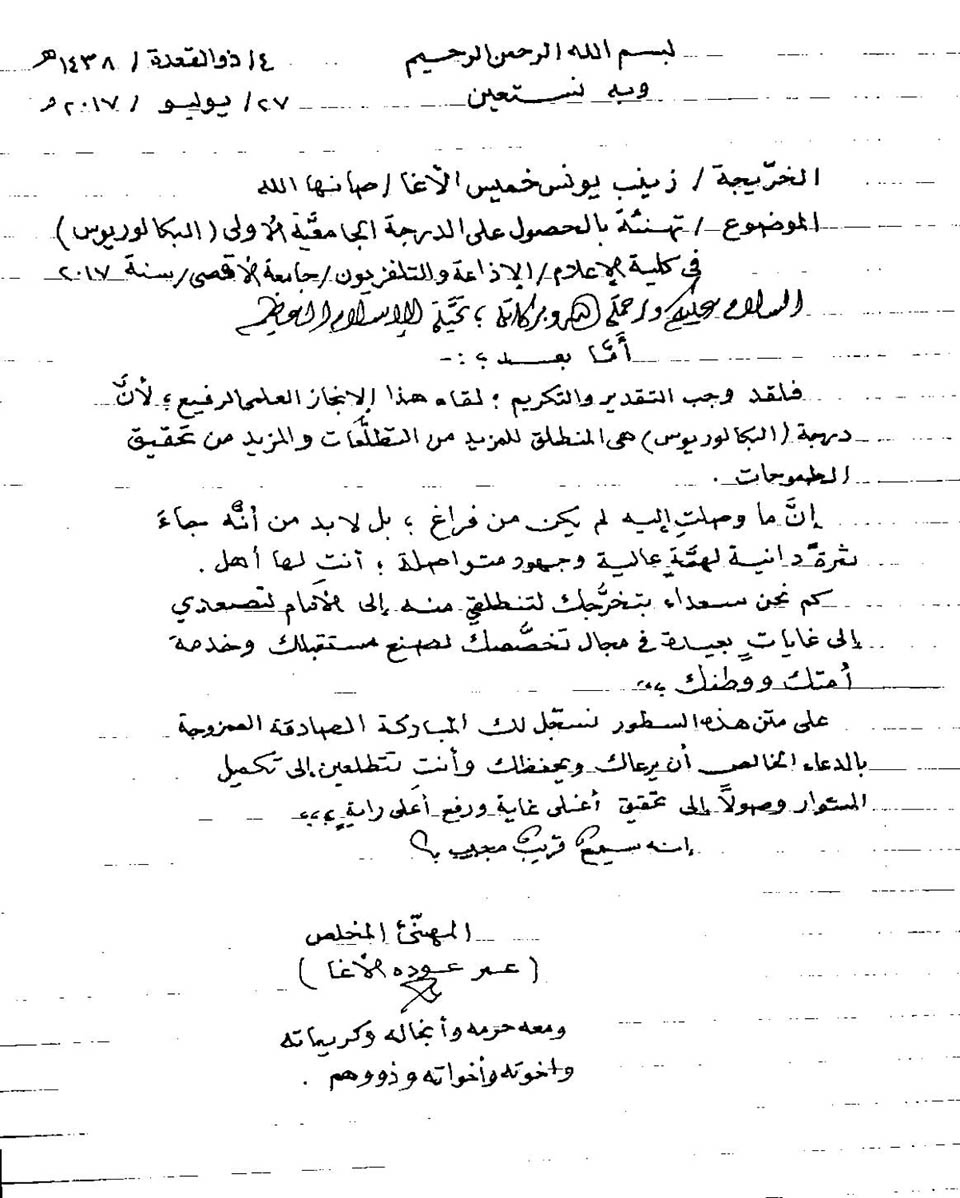 بسم الله الرحمن الرحيم
٤/ ذو القعدة / ١٤٣٨هـ
وبه نستعين
٢٧/ يوليو / ٢٠١٧م
الخرّيجة / زينب يونس خميس الأغا / صانها الله
الموضوع / تهنئة بالحصول على الدرجة الجامعيَّة الأولى (البكالوريوس)
في كلية الإعلام/ الإذاعة والتلفزيون/ جامعة الأقصى/ سنة ٢٠١٧
السلام عليكم ورحمة الله وبركاته ؛ تحيَّة الإسلام العظيم
أمَّا بعد ؛ :-
فلقد وجب التقدير والتكريم ؛ لقاء هذا الإنجاز العلمي الرفيع ؛ لأنَّ
درجة (البكالوريوس) هي المنطلق للمزيد من التطلُّعات والمزيد من تحقيق
الطموحات .
إنَّ ما وصلتِ إليه لم يكن من فراغ ؛ بل لابد من أنَّه جاءَ
ثمرةً دانية لهمَّةٍ عالية وجهود متواصلة ؛ أنتِ لها أهل .
كم نحن سعداء بتخرُّجك لتنطلقي منه إلى الأمام لتصعدي
إلى غاياتٍ بعيدة في مجال تخصُّصك لصنع مستقبلك وخدمة
أمتك ووطنك ،،،
على متن هذه السطور نسجّل لك المباركة الصادقة الممزوجة
بالدعاء الخالص أن يرعاك ويحفظك وأنتِ تتطلعين إلى تكميل
المشوار وصولاً إلى تحقيق أغلى غاية ورفع أعلى رايةٍ ،،،
إنه سميع قريب مجيب ،؟
المهنّئ المخلص
( عمر عوده الأغا )
ومعه حرمه وأنجاله وكريماته
وإخوته وأخواته وذووهم .